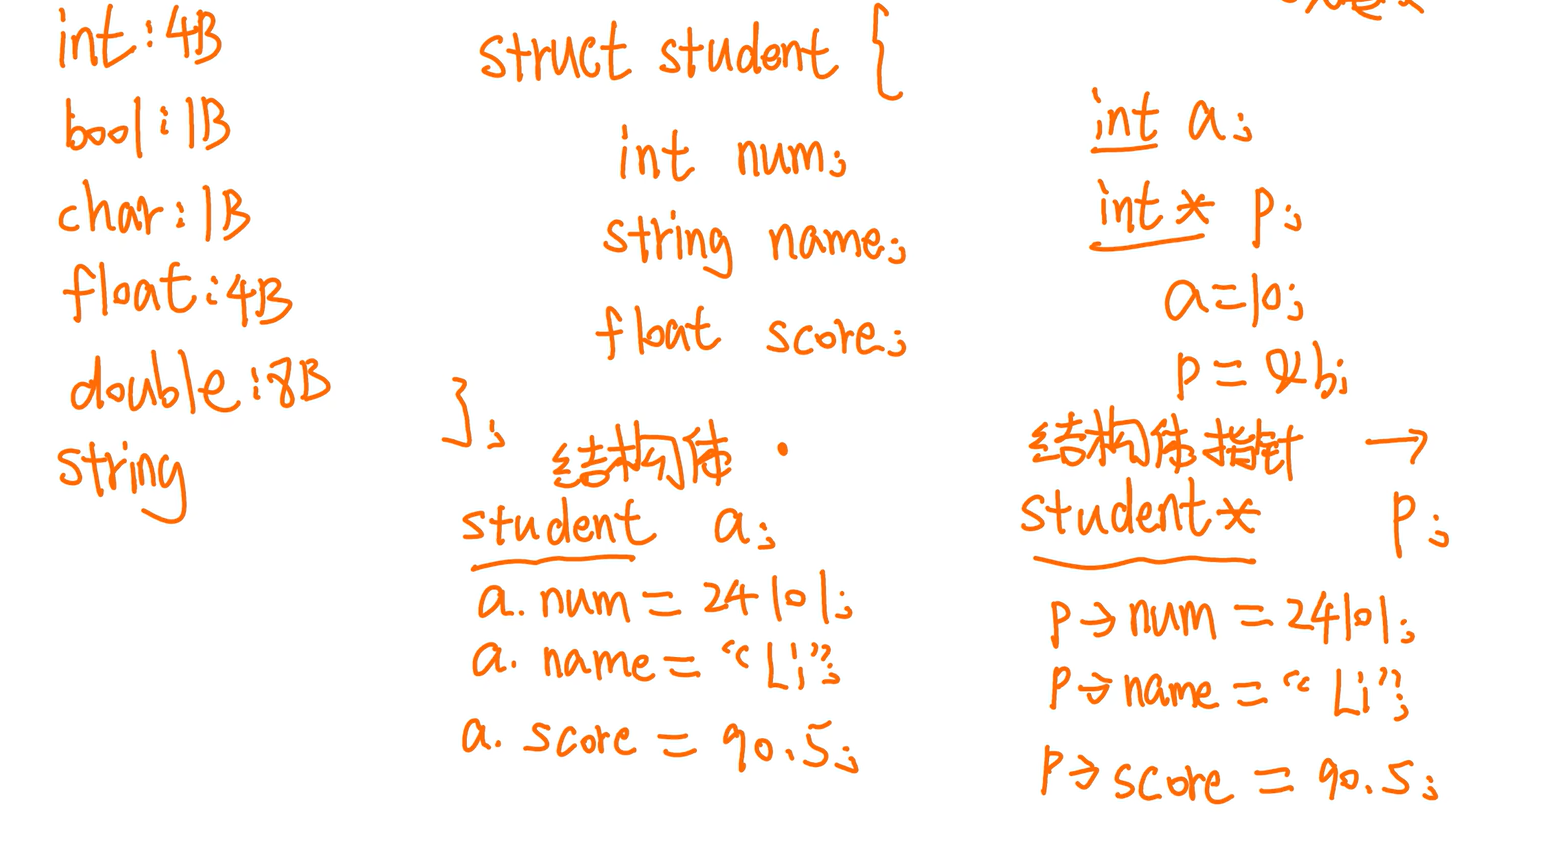 int:4B
bool:1B
char:1B
float:4B
double:8B
string
struct student {
int num;
string name;
float score;
};
结构体 ·
student a;
a. num = 24101;
a. name = “Li”;
a. score = 90.5;
int a;
int* p;
a=10;
p = &b;
结构体指针 →
student* p;
p→num = 24101;
p→name = “Li”;
p→score = 90.5;